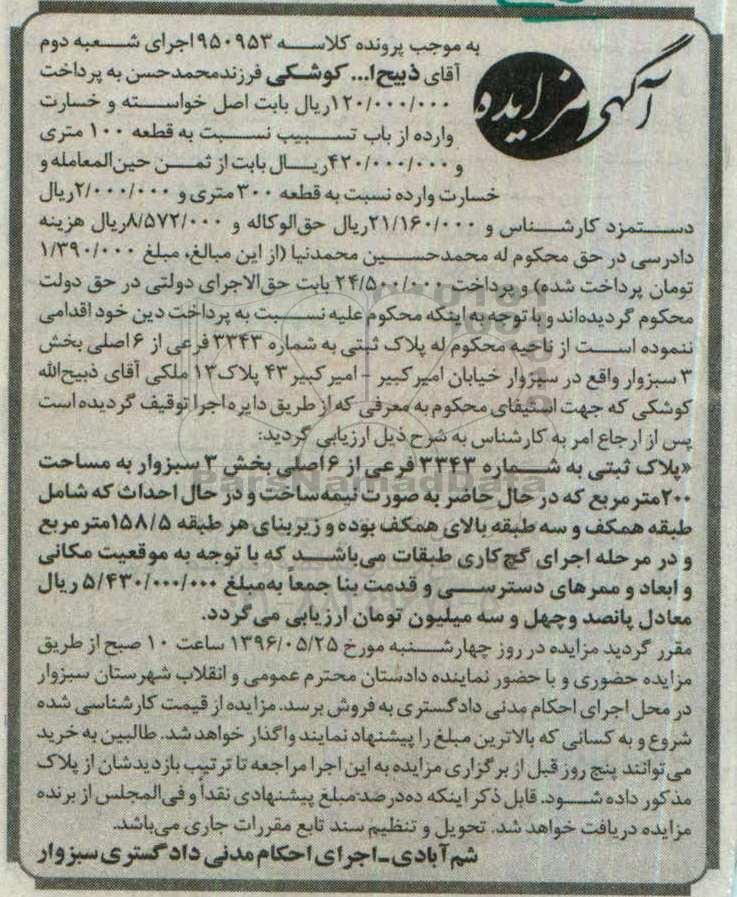 آگهی مزایده
به موجب پرونده کلاسه ۹۵۰۹۵۳ اجرای شعبه دوم
آقای ذبیح ا... کوشکی فرزند محمدحسن به پرداخت
۱۲۰/۰۰۰/۰۰۰ ریال بابت اصل خواسته و خسارت
وارده از باب تسبیب نسبت به قطعه ۱۰۰ متری
و ۴۲۰/۰۰۰/۰۰۰ ریال بابت از ثمن حین‌المعامله و
خسارت وارده نسبت به قطعه ۳۰۰ متری و ۲/۰۰۰/۰۰۰ ریال
دستمزد کارشناس و ۲۱/۱۶۰/۰۰۰ ریال حق‌الوکاله و ۸/۵۷۲/۰۰۰ ریال هزینه
دادرسی در حق محکوم له محمدحسین محمدنیا (از این مبالغ، مبلغ ۱/۳۹۰/۰۰۰
تومان پرداخت شده) و پرداخت ۲۴/۵۰۰/۰۰۰ بابت حق‌الاجرای دولتی در حق دولت
محکوم گردیده‌اند و با توجه به اینکه محکوم علیه نسبت به پرداخت دین خود اقدامی
ننموده است از ناحیه محکوم له پلاک ثبتی به شماره ۳۳۴۳ فرعی از ۶ اصلی بخش
۳ سبزوار واقع در سبزوار خیابان امیرکبیر - امیرکبیر ۴۳ پلاک ۱۳ ملکی آقای ذبیح‌الله
کوشکی که جهت استیفای محکوم به معرفی که از طریق دایره اجرا توقیف گردیده است
پس از ارجاع امر به کارشناس به شرح ذیل ارزیابی گردید:
«پلاک ثبتی به شماره ۳۳۴۳ فرعی از ۶ اصلی بخش ۳ سبزوار به مساحت
۲۰۰ متر مربع که در حال حاضر به صورت نیمه‌ساخت و در حال احداث که شامل
طبقه همکف و سه طبقه بالای همکف بوده و زیربنای هر طبقه ۱۵۸/۵ متر مربع
و در مرحله اجرای گچ‌کاری طبقات می‌باشد که با توجه به موقعیت مکانی
و ابعاد و ممرهای دسترسی و قدمت بنا جمعاً به‌مبلغ ۵/۴۳۰/۰۰۰/۰۰۰ ریال
معادل پانصد و چهل و سه میلیون تومان ارزیابی می‌گردد.
مقرر گردید مزایده در روز چهارشنبه مورخ ۱۳۹۶/۰۵/۲۵ ساعت ۱۰ صبح از طریق
مزایده حضوری و با حضور نماینده دادستان محترم عمومی و انقلاب شهرستان سبزوار
در محل اجرای احکام مدنی دادگستری به فروش برسد. مزایده از قیمت کارشناسی شده
شروع و به کسانی که بالاترین مبلغ را پیشنهاد نمایند واگذار خواهد شد. طالبین به خرید
می‌توانند پنج روز قبل از برگزاری مزایده به این اجرا مراجعه تا ترتیب بازدیدشان از پلاک
مذکور داده شود. قابل ذکر اینکه ده‌درصد مبلغ پیشنهادی نقداً و فی‌المجلس از برنده
مزایده دریافت خواهد شد. تحویل و تنظیم سند تابع مقررات جاری می‌باشد.
شم‌آبادی - اجرای احکام مدنی دادگستری سبزوار
ParsNamadData